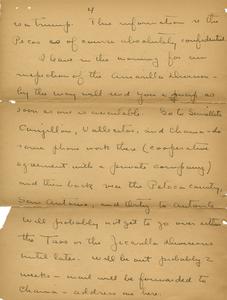 4
on a trump. This information re the
Pecos is of course absolutely confidential
I leave in the morning for an
inspection of the Amarilla division –
by the way will send you a
soon as one is available. Go to Servilleta
Canjillon, Vallecitos, and Chama – do
some phone work there (cooperative
agreement with a private company)
and then back via the country,
San Antonio, and to Antonito
Will probably not get to go over either
the Taos or the Jicarilla divisions
until later. Will be out probably 2
weeks – mail will be forwarded to
Chama – address me here.